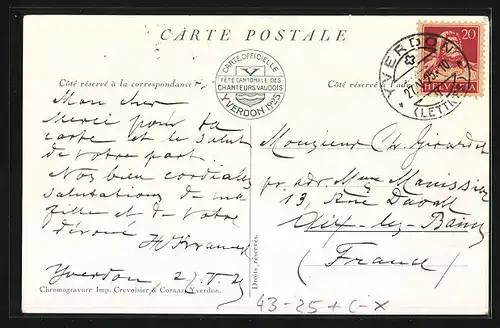 CARTE POSTALE
CARTE OFFICIELLE
FÊTE CANTONALE DES
CHANTEURS VAUDOIS
YVERDON 1925
YVERDON
(LETTR
20
HELVETIA
Côté réservé à la correspondance
Côté réservé à
Mon cher
Merci pour ta
carte et le salut
de votre part.
Nos bien cordiales
salutations de ma
fille et de votre
dévoué
Yverdon
Monsieur Ch. Girardet
pr. adr. Mme
13, Rue
Aix-les-Bains
(France)
Droits réservés.
Chromogravure Imp. Grevoisier & Yverdon.
43-25+C-X